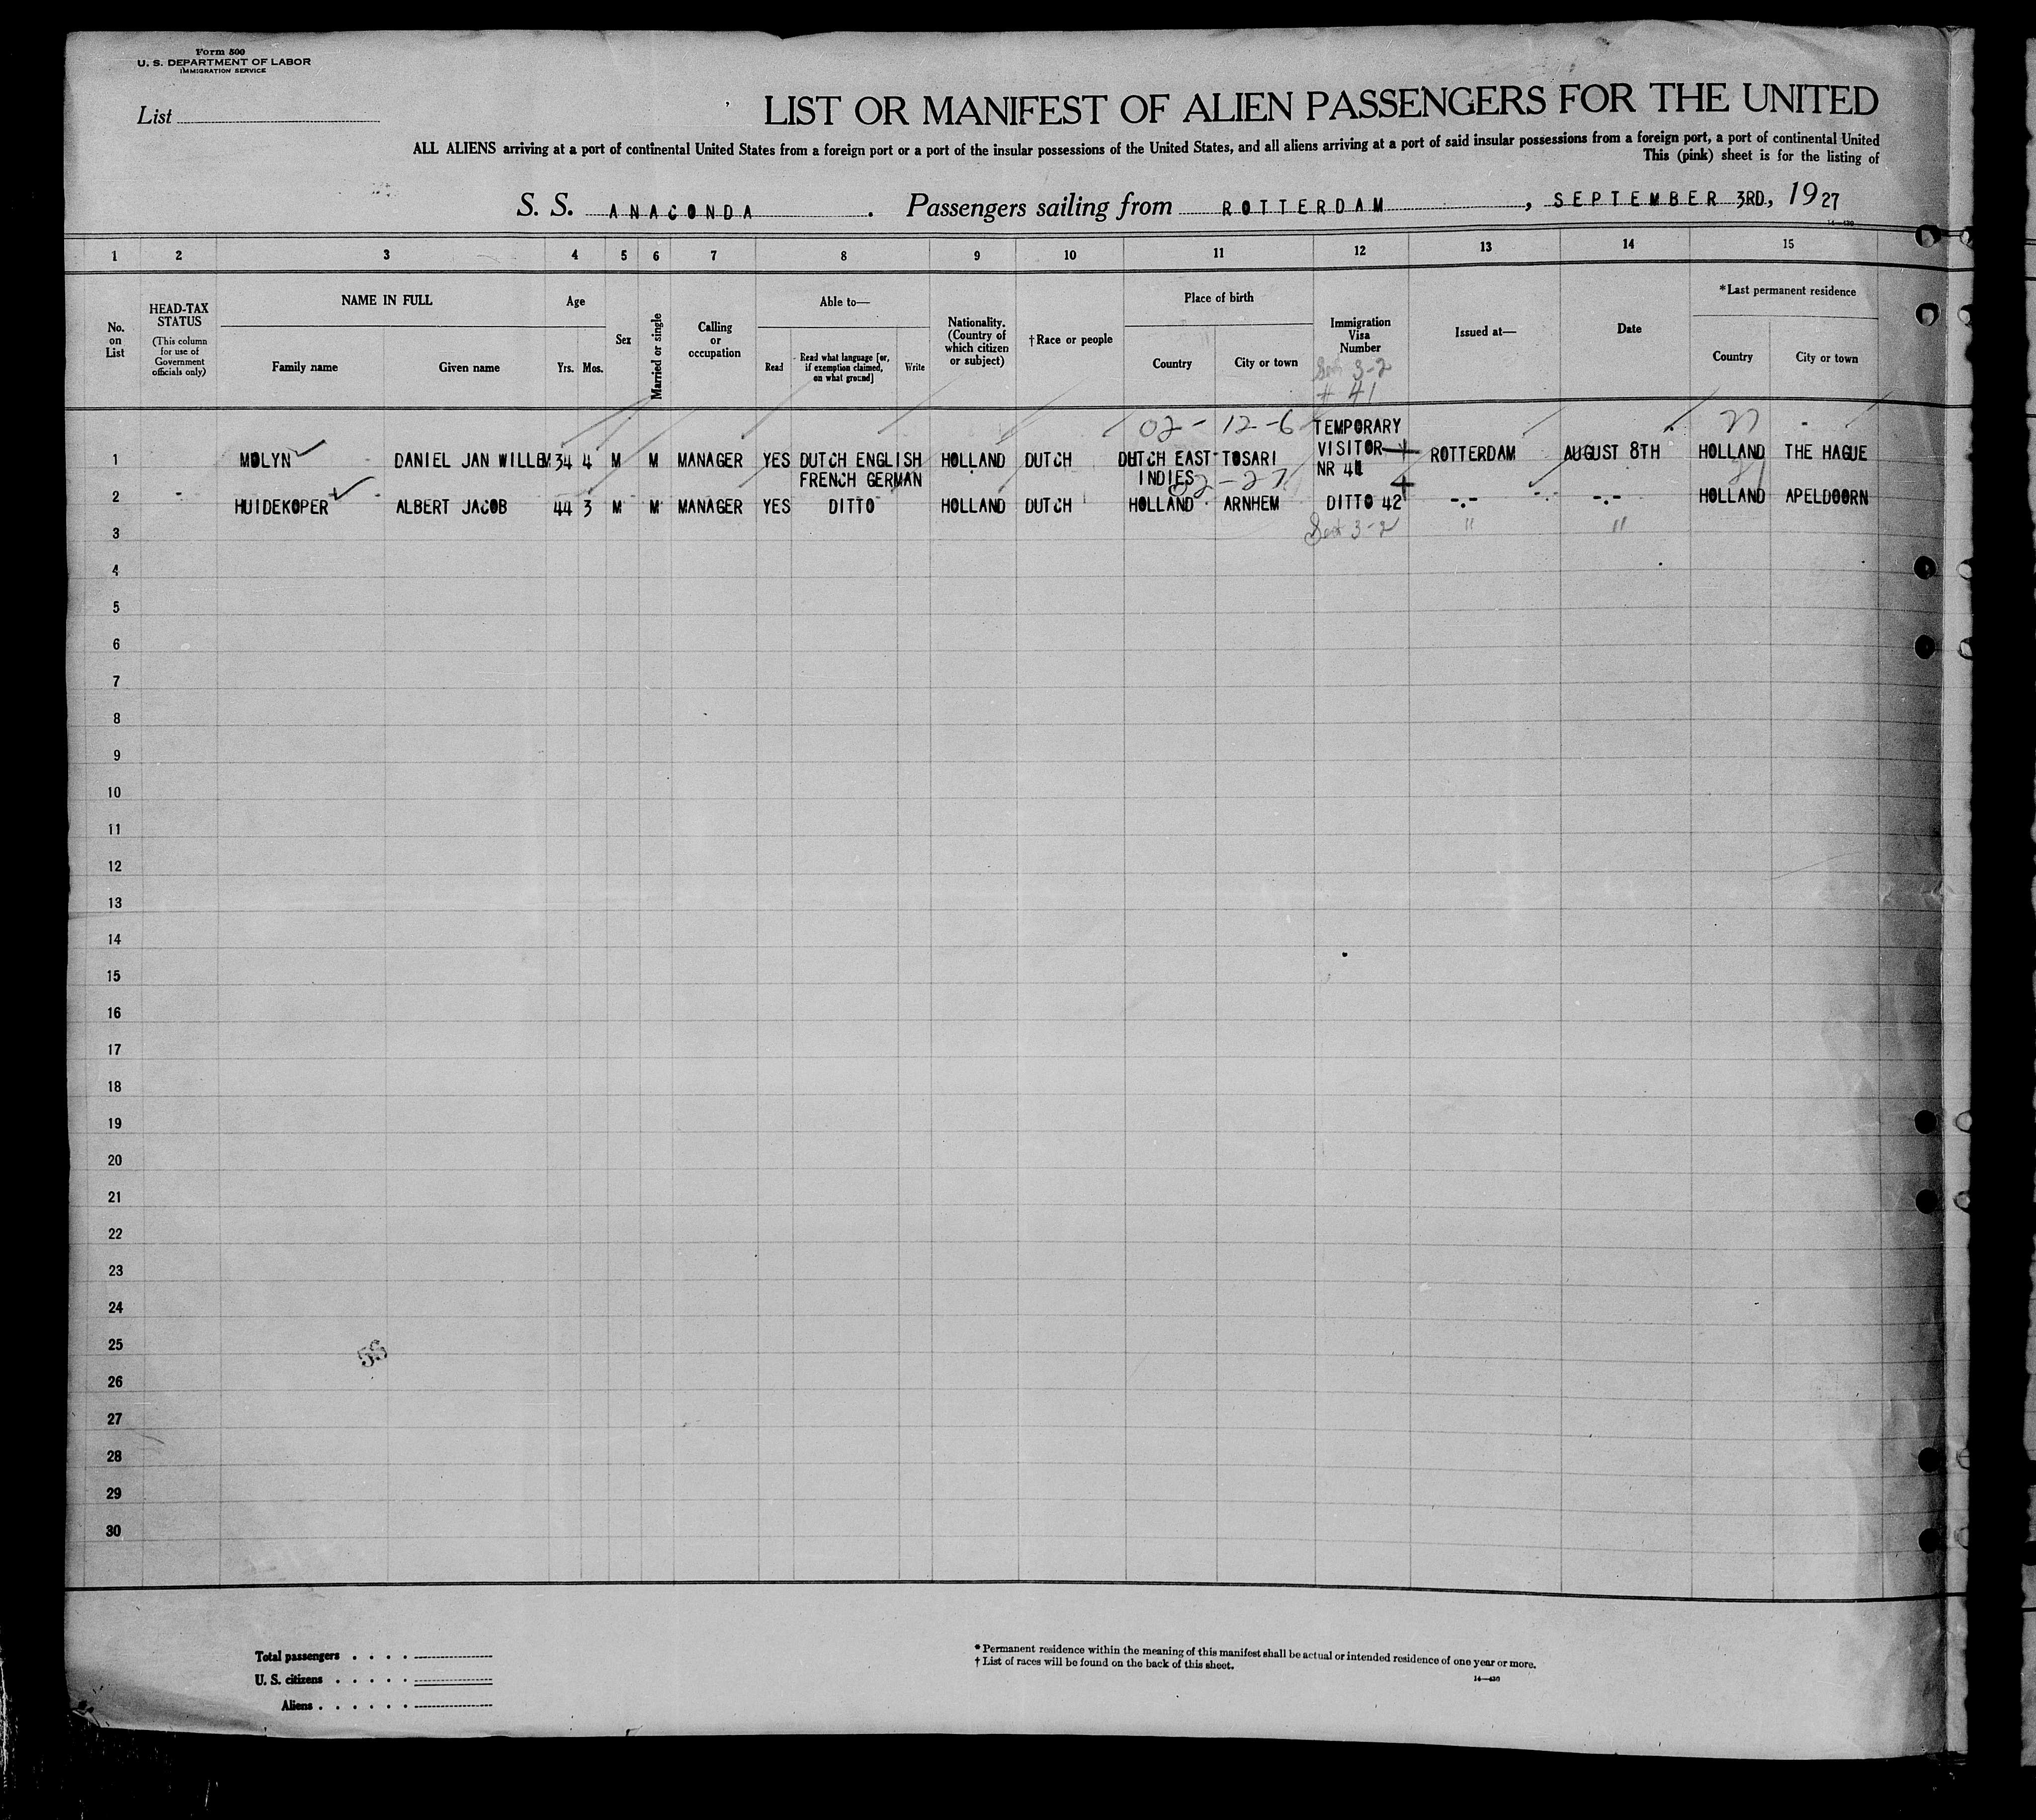 Form 500
U. S. DEPARTMENT OF LABOR
IMMIGRATION SERVICE
List
LIST OR MANIFEST OF ALIEN PASSENGERS FOR THE UNITED
ALL ALIENS arriving at a port of continental United States from a foreign port or a port of the insular possessions of the United States, and all aliens arriving at a port of said insular possessions from a foreign port, a port of continental United
This (pink) sheet is for the listing of
S. S. ANACONDA . Passengers sailing from ROTTERDAM , SEPTEMBER 3RD, 1927
14—430
1 2 3 4 5 6 7 8 9 10 11 12 13 14 15
No. on List
HEAD-TAX STATUS
(This column for use of Government officials only)
NAME IN FULL
Family name
Given name
Age
Yrs. Mos.
Sex
Married or single
Calling or occupation
Able to—
Read
Read what language [or, if exemption claimed, on what ground]
Write
Nationality. (Country of which citizen or subject)
†Race or people
Place of birth
Country
City or town
Immigration Visa Number
3-2
# 41
Issued at—
Date
*Last permanent residence
Country
City or town
02-12-6
27
1 MOLYN DANIEL JAN WILLEM 34 4 M M MANAGER YES DUTCH ENGLISH FRENCH GERMAN HOLLAND DUTCH DUTCH EAST INDIES TOSARI TEMPORARY VISITOR NR 41 ROTTERDAM AUGUST 8TH HOLLAND THE HAGUE
02-27
2 HUIDEKOPER ALBERT JACOB 44 3 M M MANAGER YES DITTO HOLLAND DUTCH HOLLAND ARNHEM DITTO 42 -.- -.- HOLLAND APELDOORN
3 3-2 " "
4
5
6
7
8
9
10
11
12
13
14
15
16
17
18
19
20
21
22
23
24
25
55
26
27
28
29
30
Total passengers
U. S. citizens
Aliens
* Permanent residence within the meaning of this manifest shall be actual or intended residence of one year or more.
† List of races will be found on the back of this sheet.
14—430